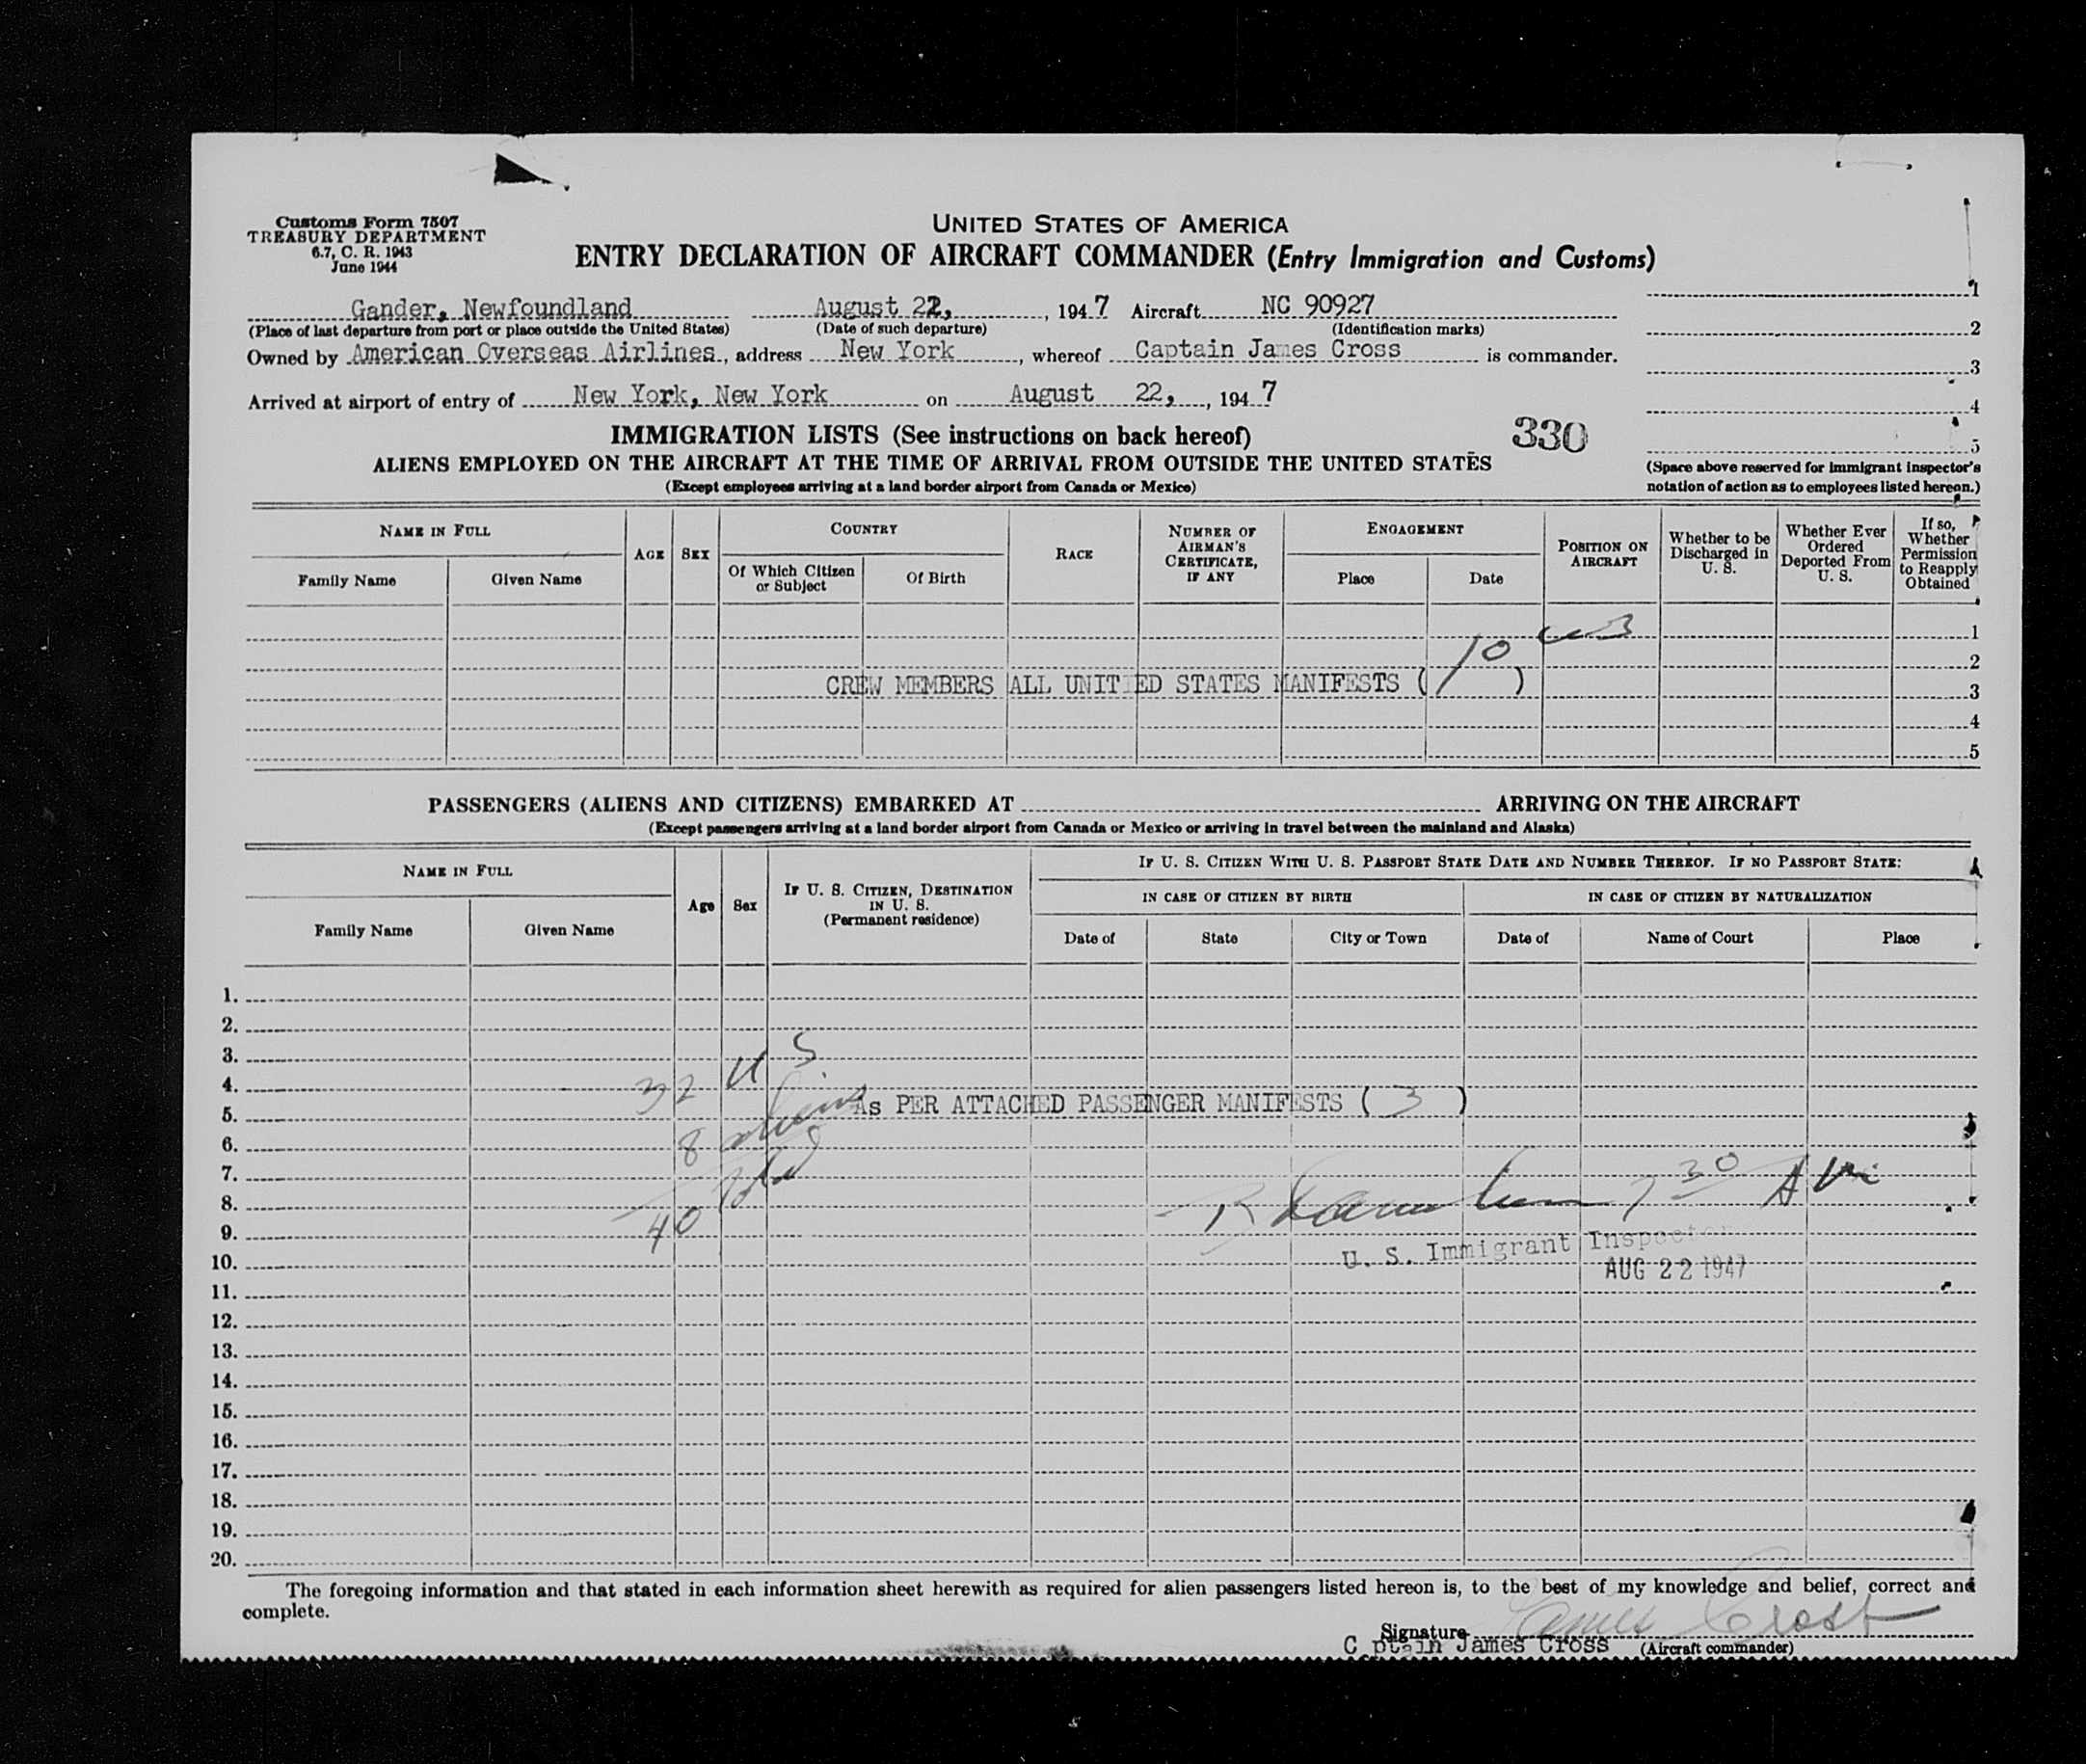 Customs Form 7507
TREASURY DEPARTMENT
6.7, C. R. 1943
June 1944
UNITED STATES OF AMERICA
ENTRY DECLARATION OF AIRCRAFT COMMANDER (Entry Immigration and Customs)
Gander, Newfoundland August 22, , 1947 Aircraft NC 90927
(Place of last departure from port or place outside the United States) (Date of such departure) (Identification marks)
Owned by American Overseas Airlines, address New York, whereof Captain James Cross is commander.
Arrived at airport of entry of New York, New York on August 22, , 1947
1
2
3
4
5
(Space above reserved for immigrant inspector's
notation of action as to employees listed hereon.)
IMMIGRATION LISTS (See instructions on back hereof) 330
ALIENS EMPLOYED ON THE AIRCRAFT AT THE TIME OF ARRIVAL FROM OUTSIDE THE UNITED STATES
(Except employees arriving at a land border airport from Canada or Mexico)
NAME IN FULL
Family Name
Given Name
AGE
SEX
COUNTRY
Of Which Citizen
or Subject
Of Birth
RACE
NUMBER OF
AIRMAN'S
CERTIFICATE,
IF ANY
ENGAGEMENT
Place
Date
POSITION ON
AIRCRAFT
Whether to be
Discharged in
U. S.
Whether Ever
Ordered
Deported From
U. S.
If so,
Whether
Permission
to Reapply
Obtained
1
2
CREW MEMBERS ALL UNITED STATES MANIFESTS ( 10 )
3
4
5
PASSENGERS (ALIENS AND CITIZENS) EMBARKED AT ARRIVING ON THE AIRCRAFT
(Except passengers arriving at a land border airport from Canada or Mexico or arriving in travel between the mainland and Alaska)
NAME IN FULL
Family Name
Given Name
Age
Sex
IF U. S. CITIZEN, DESTINATION
IN U. S.
(Permanent residence)
IF U. S. CITIZEN WITH U. S. PASSPORT STATE DATE AND NUMBER THEREOF. IF NO PASSPORT STATE:
IN CASE OF CITIZEN BY BIRTH
IN CASE OF CITIZEN BY NATURALIZATION
Date of
State
City or Town
Date of
Name of Court
Place
1.
2.
3.
4. 32 US
5. As PER ATTACHED PASSENGER MANIFESTS ( 3 )
6. 8 aliens
7.
8. 7 30 AM
9. 40
10. U. S. Immigrant Inspector
AUG 22 1947
11.
12.
13.
14.
15.
16.
17.
18.
19.
20.
The foregoing information and that stated in each information sheet herewith as required for alien passengers listed hereon is, to the best of my knowledge and belief, correct and
complete.
Signature James Cross
C ptain James Cross (Aircraft commander)